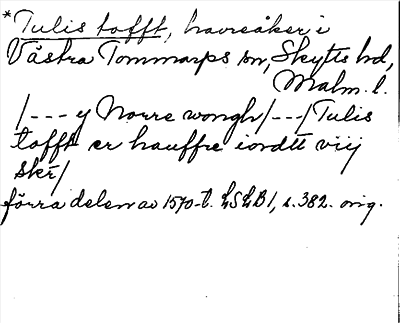 *Tulis tofft, havreåker i
Västra Tommarps sn, Skytts hd,
Malm. l.
/--- y Norre wongh/---/Tulis
tofft er hauffre iordtt viij
skr/
förra delen av 1570-t. LSLB 1, s. 382. orig.